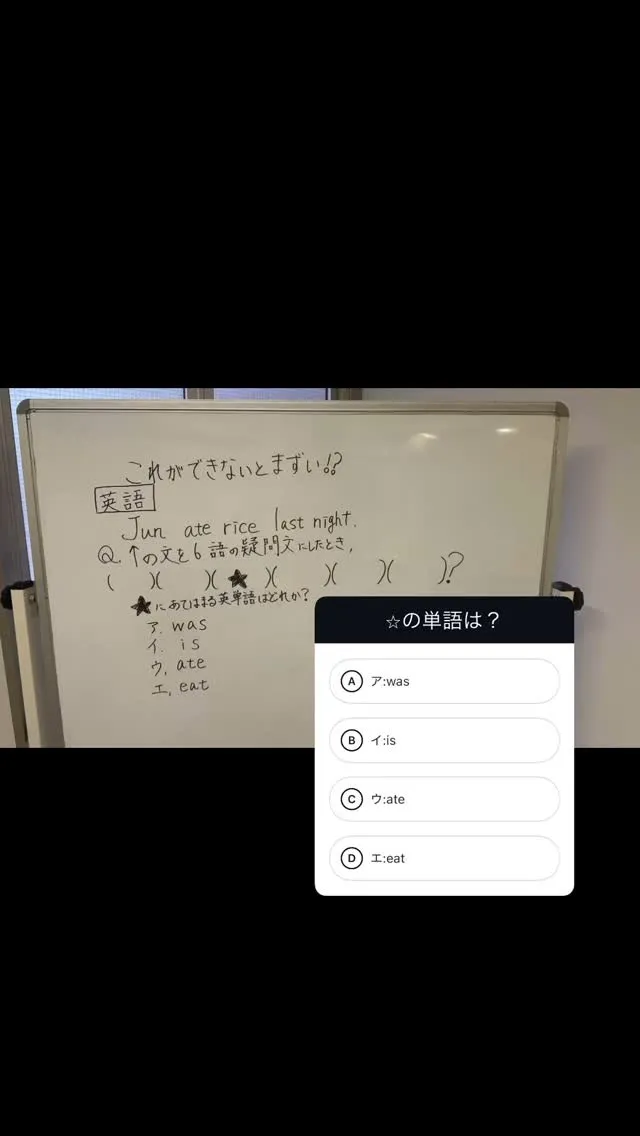 これができないとまずい!?
英語
Jun ate rice last night.
Q.↑の文を6語の疑問文にしたとき,
( )( )(★)( )( )( )?
★にあてはまる英単語はどれか?
ア. was
イ. is
ウ. ate
エ. eat
☆の単語は?
A ア:was
B イ:is
C ウ:ate
D エ:eat